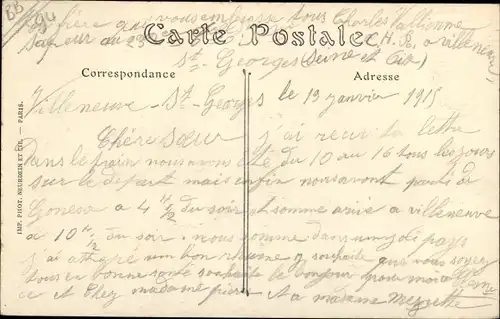 BB
94
frère qui vous embrasse tous Charles
Sapeur au 23e
Carte Postale
C. H. R. a villeneuve
St Georges (Seine et Oise)
Correspondance
Adresse
Villeneuve-St-Georges le 13 janvier 1915
Chère Sœur j'ai reçu ta lettre
Dans le train nous avons été du 10 au 16 tous les jours
sur le départ mais enfin nous avons parti de
a 4 H 1/2 du soir et somme arivé a villeneuve
a 10 H 1/2 du soir. nous somme dans un joli pays
j'ai attrapé un bon rhume je souhaite que vous soyez
tous en bonne santé souhaite le bonjour pour moi a
a et Chez madame et a madame
IMP. PHOT. NEURDEIN ET CIE. — PARIS.